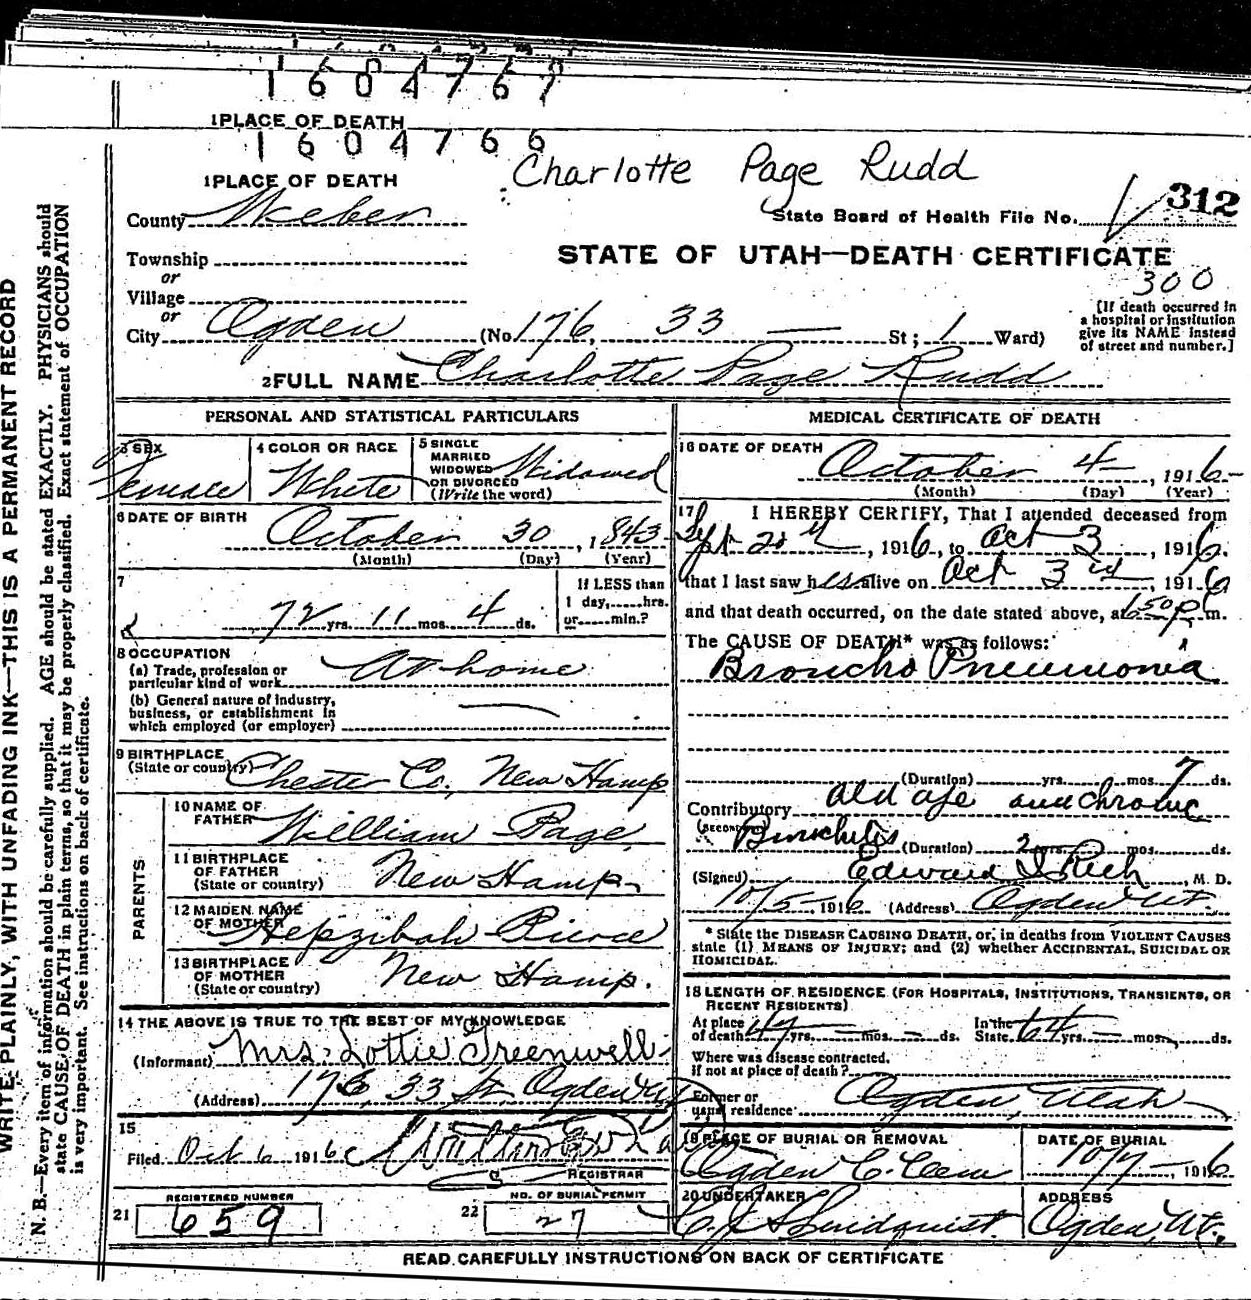 1604767
1 PLACE OF DEATH
1604766
Charlotte Page Rudd
1 PLACE OF DEATH
312
County Weber
State Board of Health File No.
Township
STATE OF UTAH—DEATH CERTIFICATE
or
300
Village
[If death occurred in a hospital or institution give its NAME instead of street and number.]
or
City Ogden (No. 176, 33 — St; 1 Ward)
2 FULL NAME Charlotte Page Rudd
PERSONAL AND STATISTICAL PARTICULARS
3 SEX Female
4 COLOR OR RACE White
5 SINGLE MARRIED WIDOWED OR DIVORCED (Write the word) Widowed
6 DATE OF BIRTH October 30, 1843
(Month) (Day) (Year)
7 72 yrs. 11 mos. 4 ds.
If LESS than 1 day, hrs. or min.?
8 OCCUPATION
(a) Trade, profession or particular kind of work At home
(b) General nature of industry, business, or establishment in which employed (or employer) —
9 BIRTHPLACE (State or country) Chester Co., New Hamp
PARENTS
10 NAME OF FATHER William Page
11 BIRTHPLACE OF FATHER (State or country) New Hamp.
12 MAIDEN NAME OF MOTHER Hepzibah Pierce
13 BIRTHPLACE OF MOTHER (State or country) New Hamp.
14 THE ABOVE IS TRUE TO THE BEST OF MY KNOWLEDGE
(Informant) Mrs. Lottie Greenwell
(Address) 176, 33 St Ogden
15
Filed Oct 6 1916
REGISTRAR
REGISTERED NUMBER
21 659
NO. OF BURIAL PERMIT
22 27
MEDICAL CERTIFICATE OF DEATH
16 DATE OF DEATH October 4, 1916
(Month) (Day) (Year)
17 I HEREBY CERTIFY, That I attended deceased from
Sept 20th, 1916, to Oct 3, 1916.
that I last saw her alive on Oct 3rd, 1916
and that death occurred, on the date stated above, at 650 P m.
The CAUSE OF DEATH* was as follows:
Broncho Pneumonia
(Duration) yrs. mos. 7 ds.
Contributory old age and chronic
(SECONDARY) Bronchitis (Duration) 2 yrs. mos. ds.
(Signed) Edward I Rich, M. D.
10/5-1916 (Address) Ogden Ut.
* State the DISEASE CAUSING DEATH, or, in deaths from VIOLENT CAUSES
state (1) MEANS OF INJURY; and (2) whether ACCIDENTAL, SUICIDAL OR
HOMICIDAL.
18 LENGTH OF RESIDENCE (FOR HOSPITALS, INSTITUTIONS, TRANSIENTS, OR
RECENT RESIDENTS)
At place of death 47 yrs. — mos. — ds. In the State 64 yrs. — mos. ds.
Where was disease contracted,
if not at place of death?
Former or usual residence Ogden, Utah
19 PLACE OF BURIAL OR REMOVAL
Ogden C. Cem
DATE OF BURIAL
10/7 — 1916
20 UNDERTAKER
C J A Lindquist.
ADDRESS
Ogden, Ut.,
READ CAREFULLY INSTRUCTIONS ON BACK OF CERTIFICATE
WRITE PLAINLY, WITH UNFADING INK—THIS IS A PERMANENT RECORD
N. B.—Every item of information should be carefully supplied. AGE should be stated EXACTLY. PHYSICIANS should
state CAUSE OF DEATH in plain terms, so that it may be properly classified. Exact statement of OCCUPATION
is very important. See instructions on back of certificate.